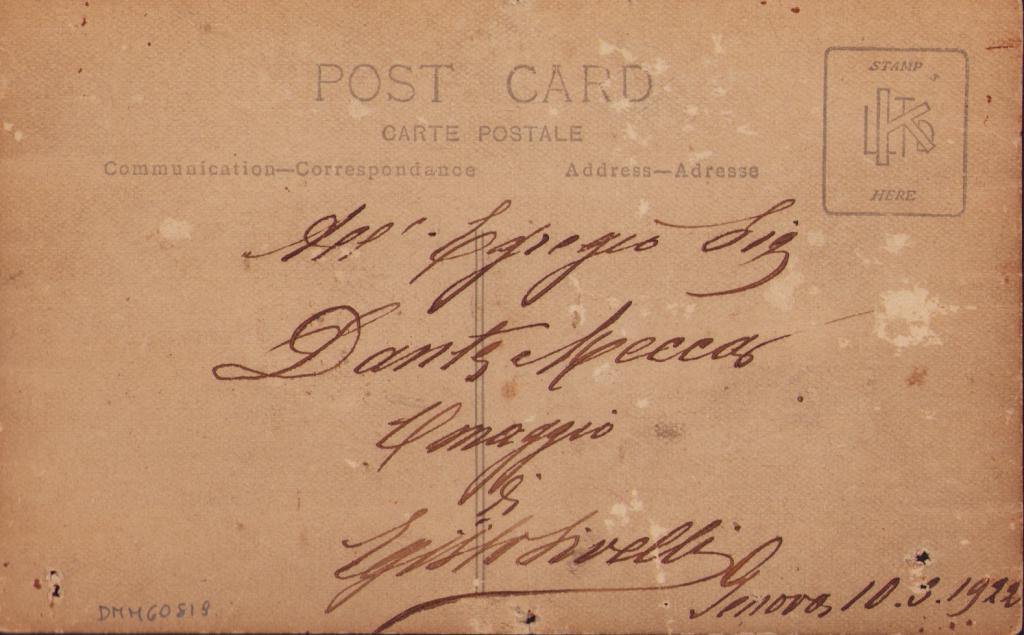 POST CARD
CARTE POSTALE
Communication—Correspondance Address—Adresse
STAMP
HERE
All' Egregio Sig
Dante Mecca
Omaggio
di
Egisto Sivelli
Genova, 10.3.1922
DMM60819